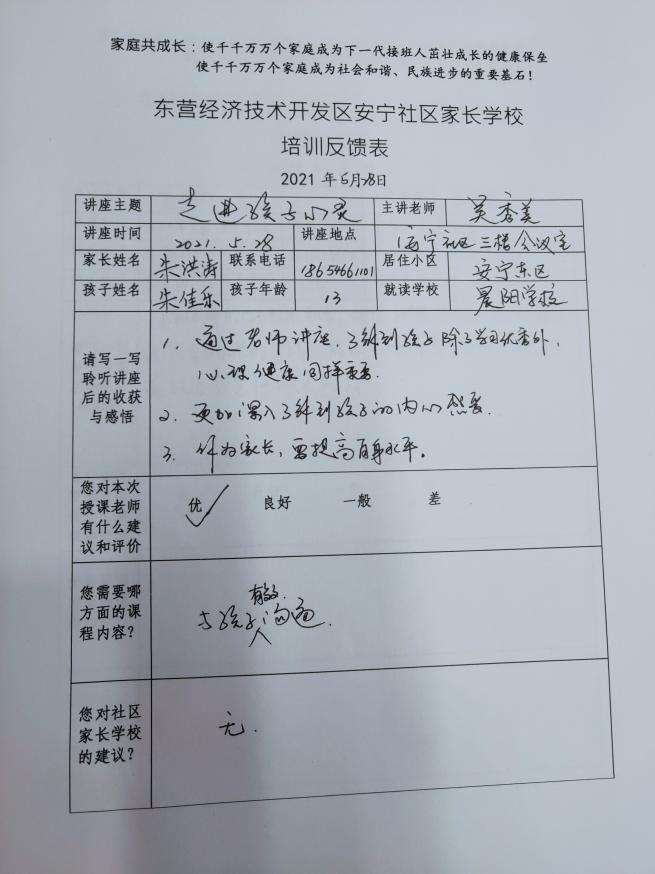 家庭共成长：使千千万万个家庭成为下一代接班人茁壮成长的健康保垒
使千千万万个家庭成为社会和谐、民族进步的重要基石！
东营经济技术开发区安宁社区家长学校
培训反馈表
2021 年5月28日
讲座主题 走进孩子心灵 主讲老师 吴秀美
讲座时间 2021.5.28 讲座地点 安宁社区三楼会议室
家长姓名 朱洪涛 联系电话 18654661101 居住小区 安宁东区
孩子姓名 朱佳乐 孩子年龄 13 就读学校 晨阳学校
请写一写
聆听讲座
后的收获
与感悟
1. 通过老师讲座，了解到孩子除了学习优秀外，
心理健康同样重要.
2. 更加深入了解到孩子的内心
3. 作为家长，需提高自身水平。
您对本次
授课老师
有什么建
议和评价
优 ✓ 良好 一般 差
您需要哪
方面的课
程内容？
与孩子有效沟通.
您对社区
家长学校
的建议？
无.